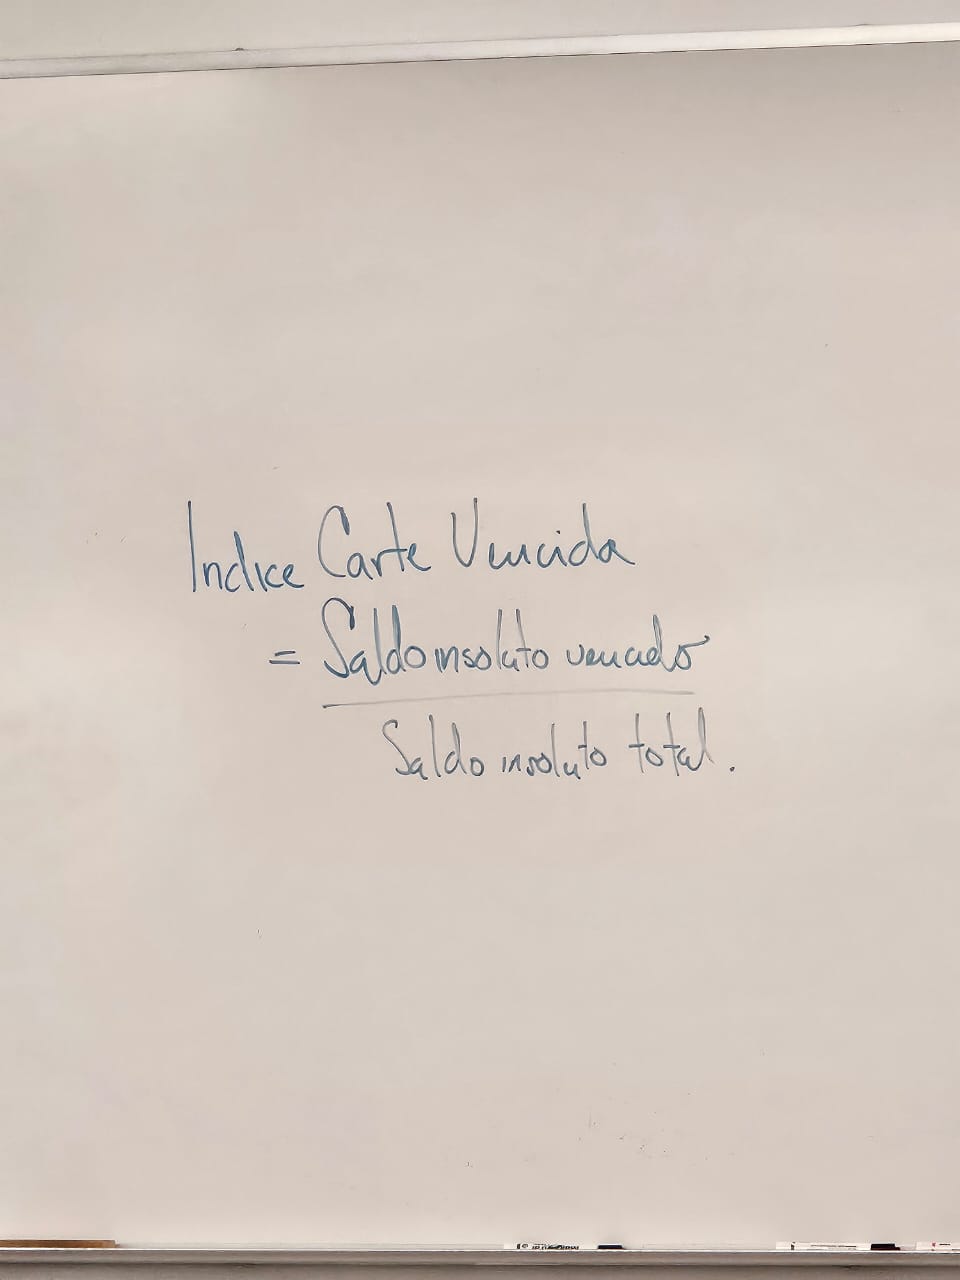 Indice Carte Vencida
= Saldo insoluto vencido
Saldo insoluto total.